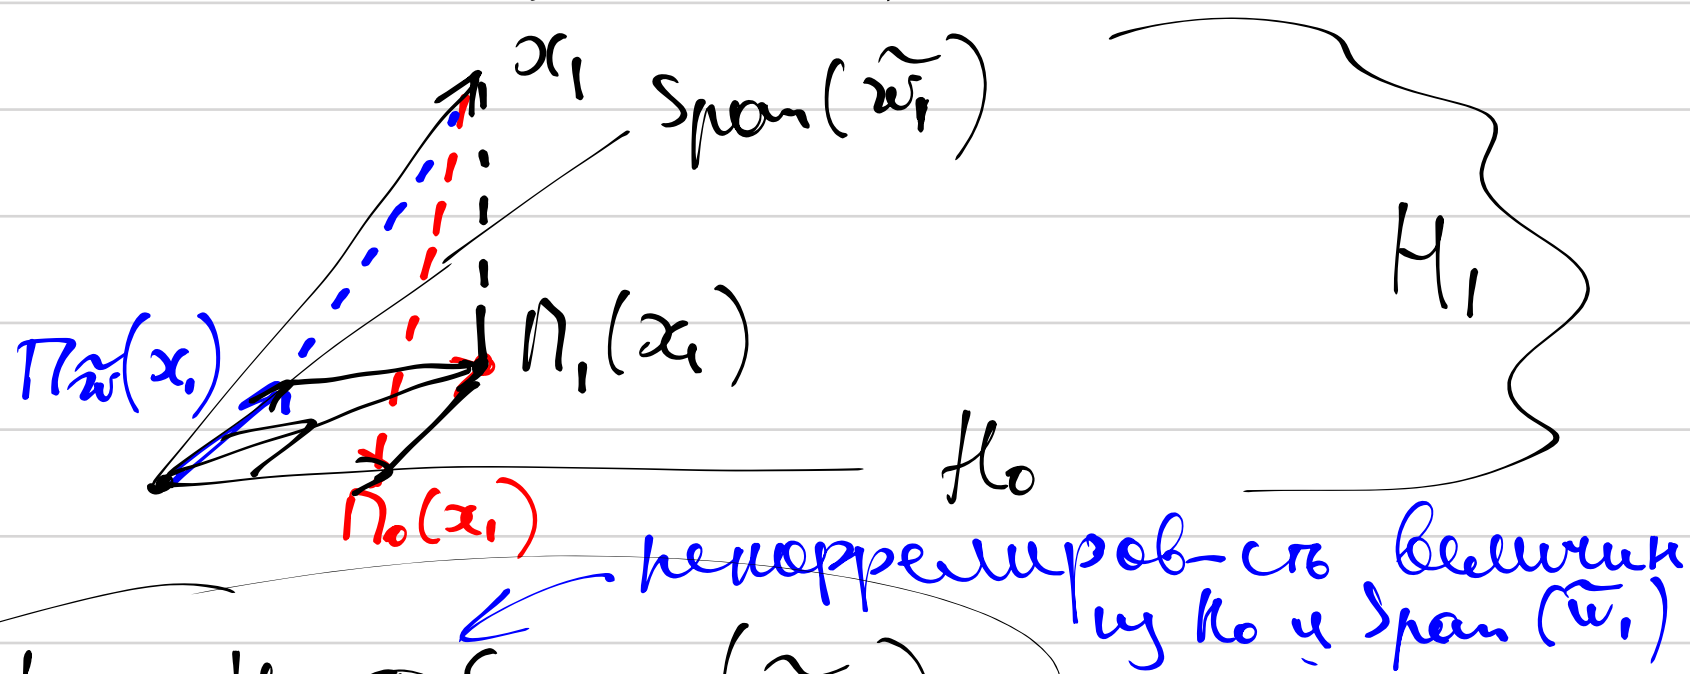 x₁
Span(w̃₁)
H₁
Π_w̃(x₁)
Π₁(x₁)
H₀
Π₀(x₁)
некоррелиров-сть величин
из H₀ и Span(w̃₁)